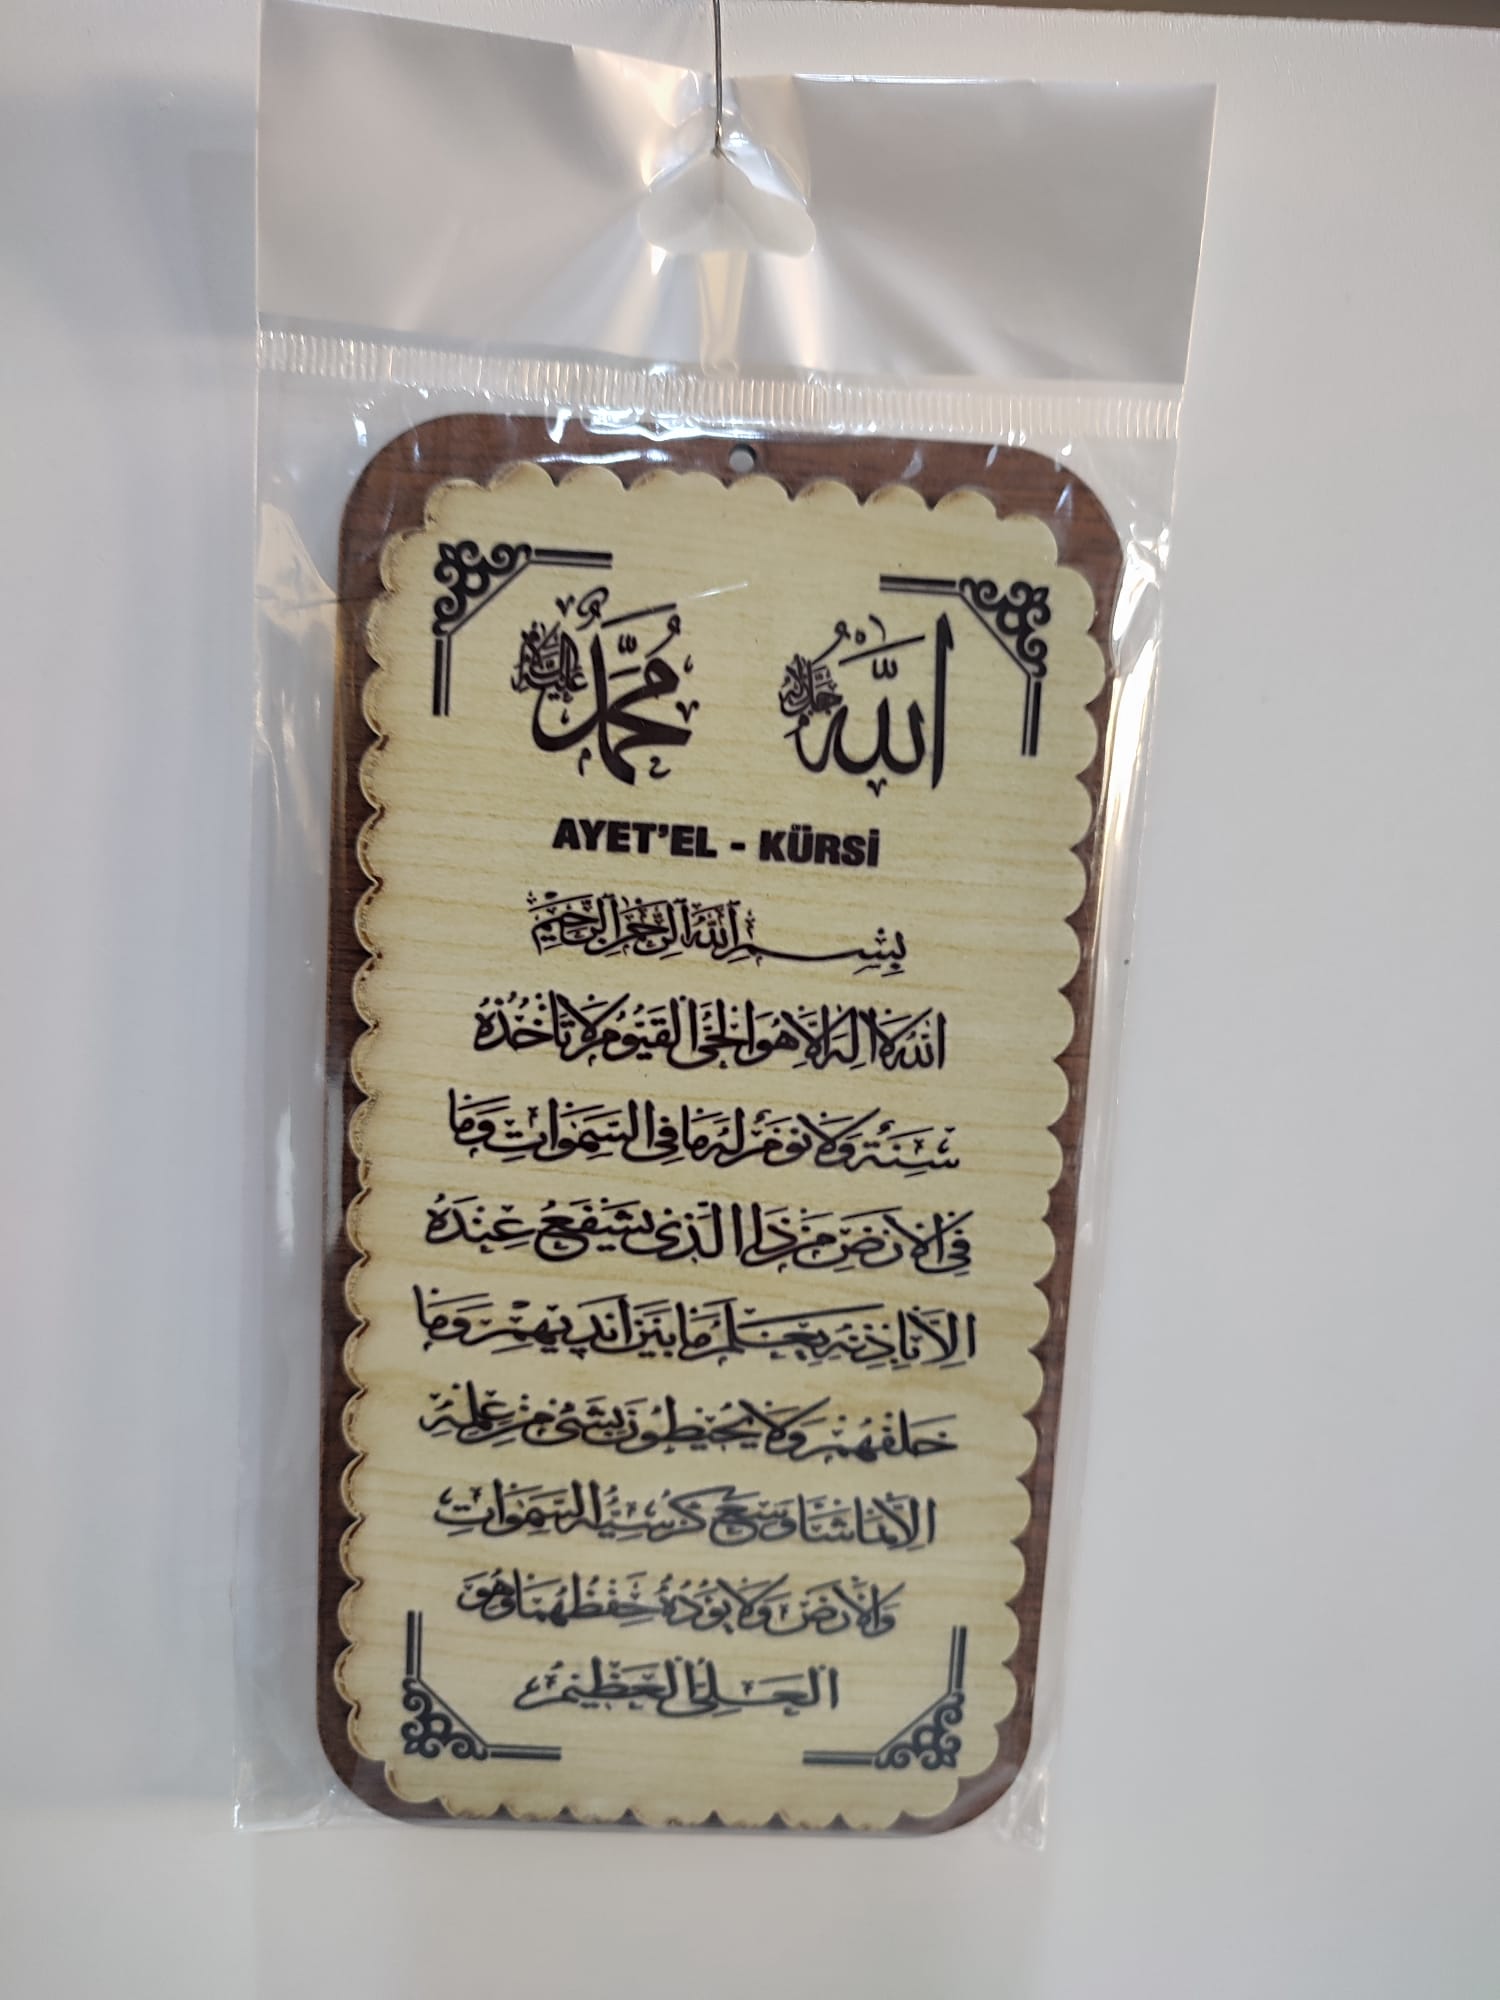 الله جل جلاله
محمد عليه السلام
AYET'EL - KÜRSİ
بسم الله الرحمن الرحيم
الله لا اله الا هو الحي القيوم لا تأخذه
سنة ولا نوم له ما في السموات وما
في الارض من ذا الذي يشفع عنده
الا باذنه يعلم ما بين ايديهم وما
خلفهم ولا يحيطون بشيء من علمه
الا بما شاء وسع كرسيه السموات
والارض ولا يؤده حفظهما وهو
العلي العظيم